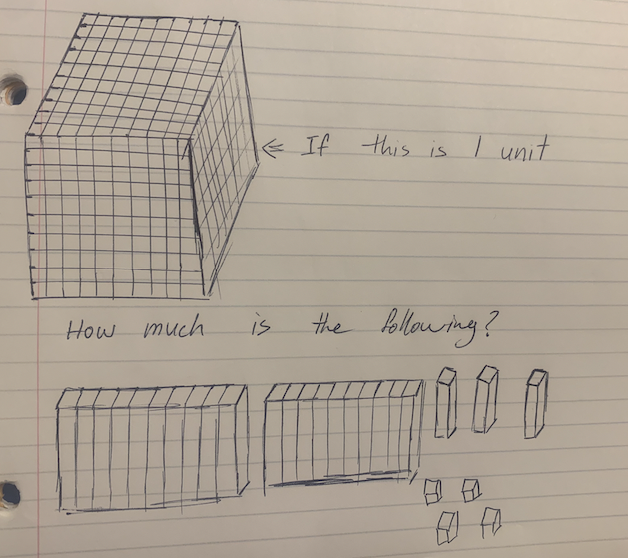 ⇐ If this is 1 unit
How much is the following?